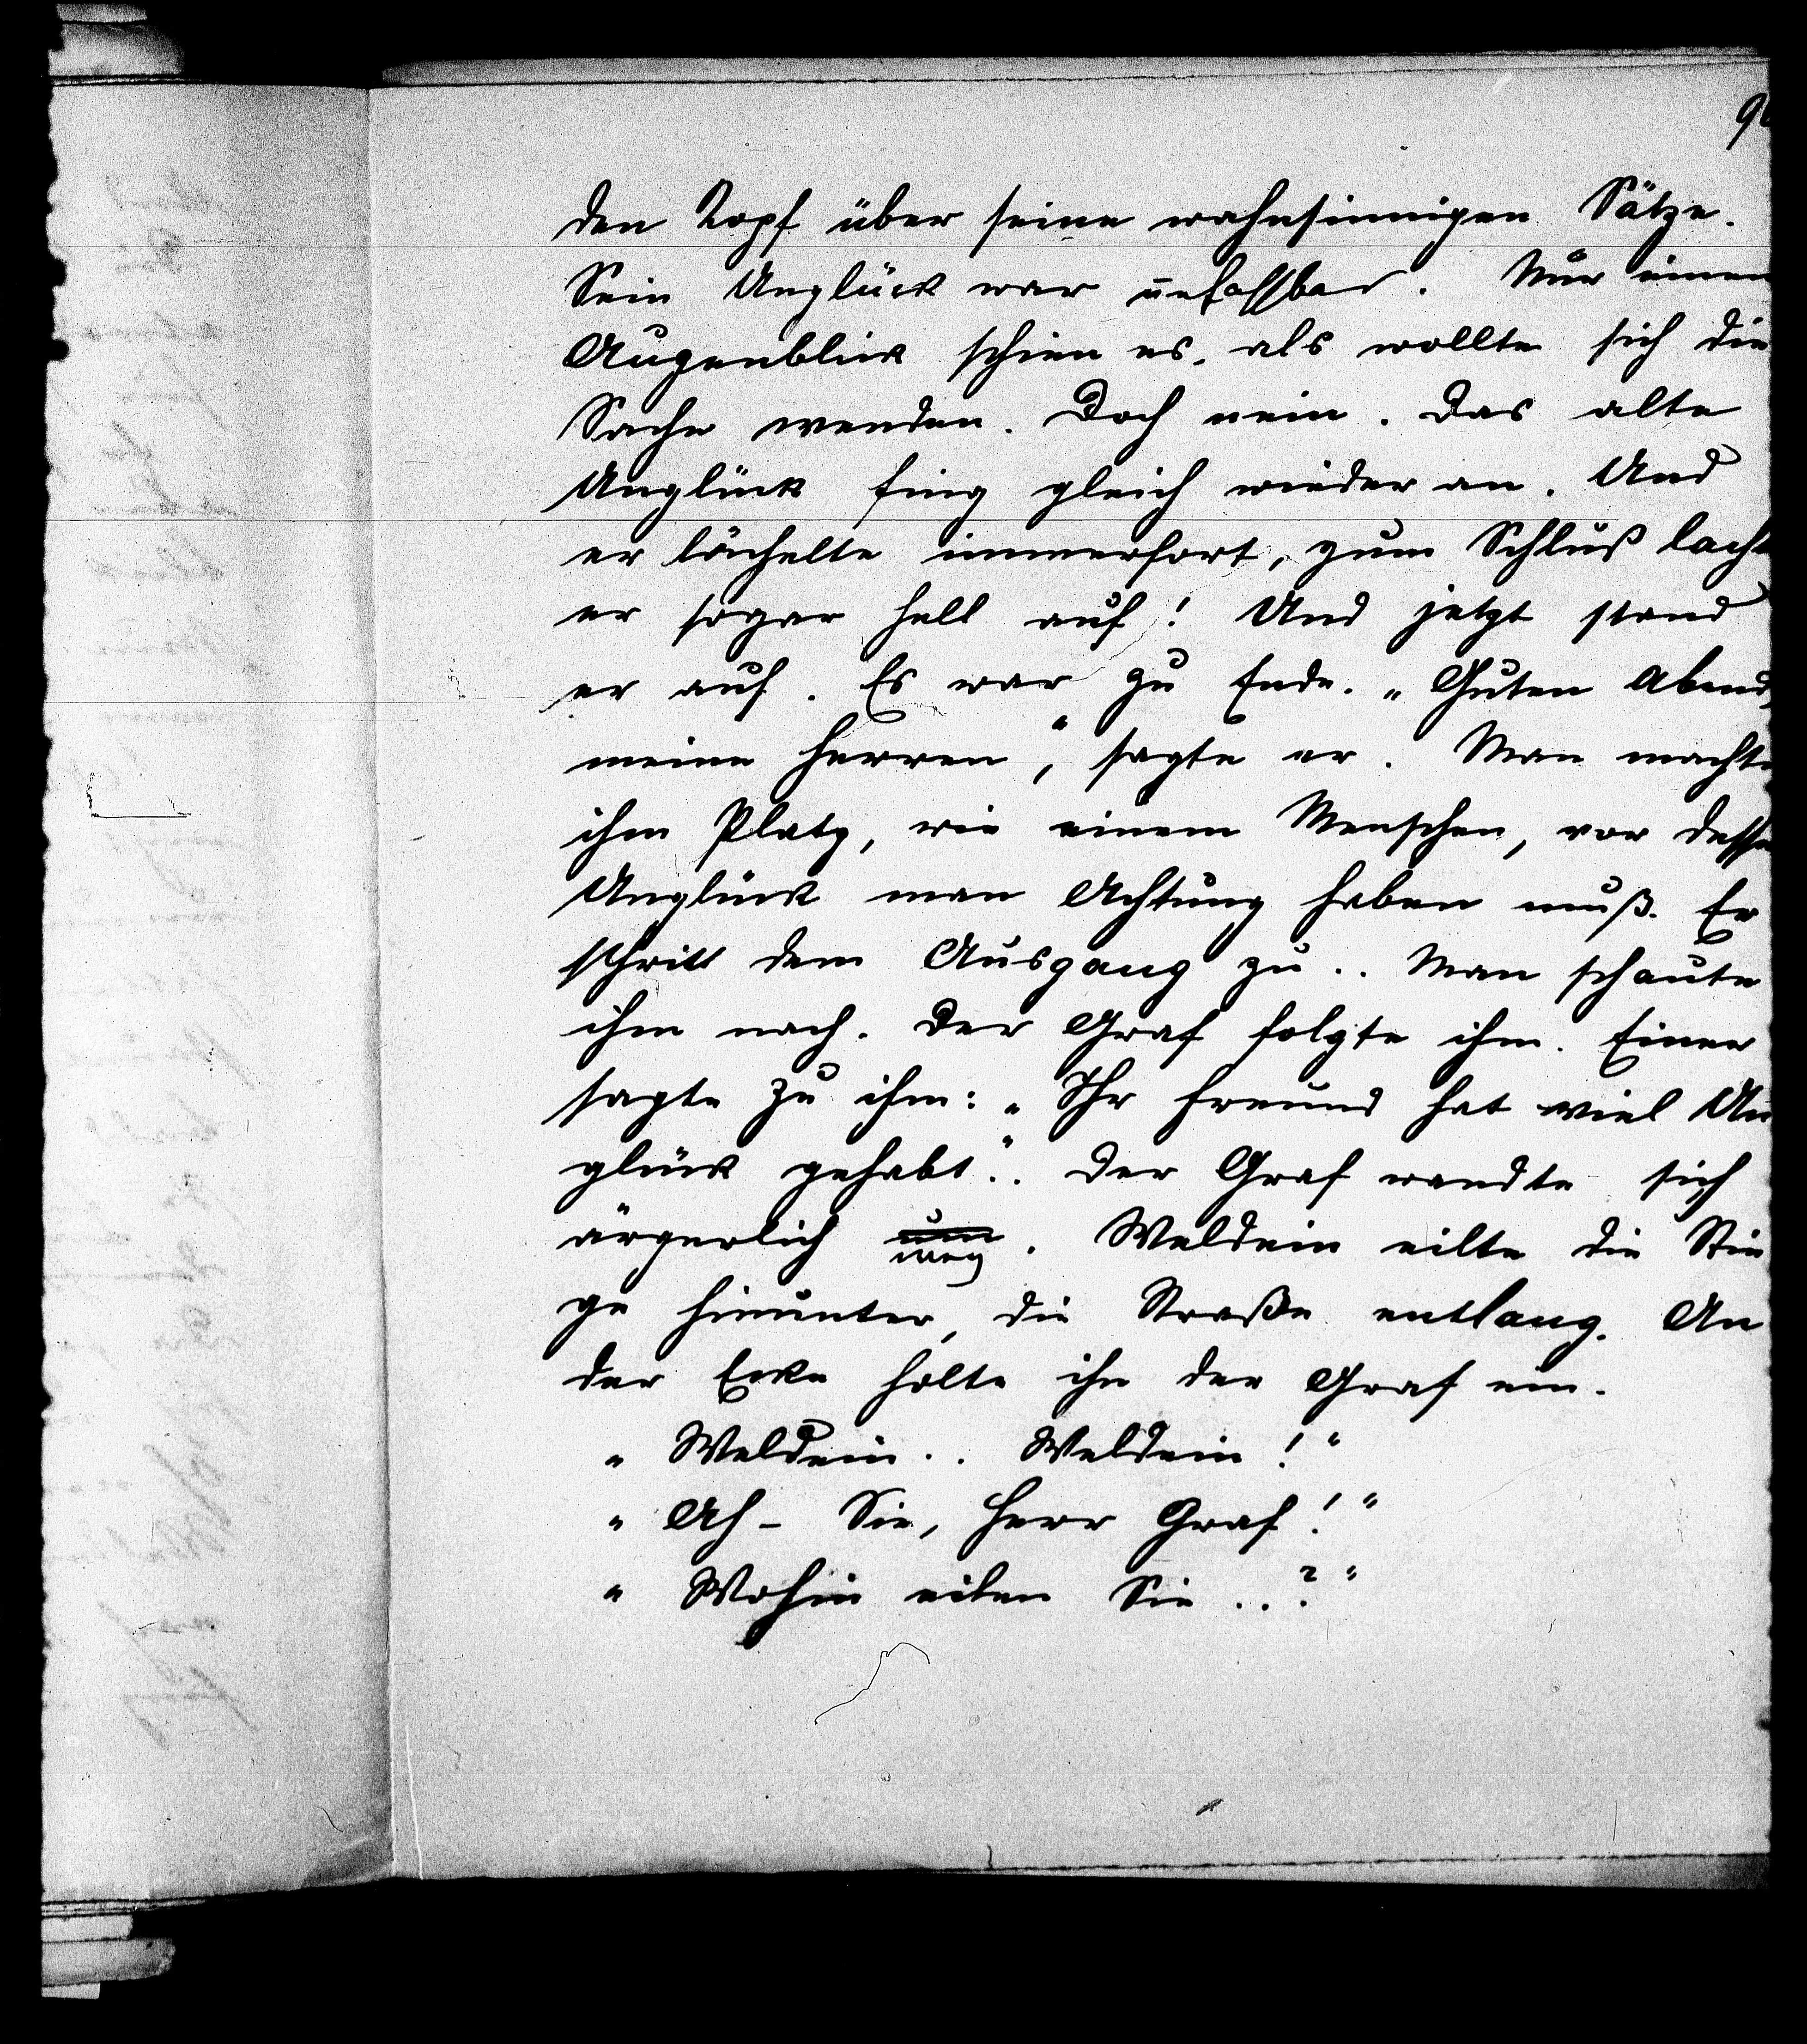 den Kopf über seine wahnsinnigen Sätze.
Sein Unglück war unfassbar. Nur einen
Augenblick schien es, als wollte sich die
Sache wenden. Doch nein. Das alte
Unglück fing gleich wieder an. Und
er lächelte immerfort, zum Schluß lacht
er sogar hell auf! Und jetzt stand
er auf. Es war zu Ende. „Guten Abend,
meine Herren“, sagte er. Man machte
ihm Platz, wie einem Menschen, vor desse
Unglück man Achtung haben muß. Er
schritt dem Ausgang zu.. Man schaute
ihm nach. Der Graf folgte ihm. Einer
sagte zu ihm: „Ihr Freund hat viel Un
glück gehabt“.. Der Graf wandte sich
ärgerlich um weg. Weldein eilte die Stie
ge hinunter, die Straße entlang. An
der Ecke holte ihn der Graf ein.
„Weldein.. Weldein!“
„Ah – Sie, Herr Graf!“
„Wohin eilen Sie..?“